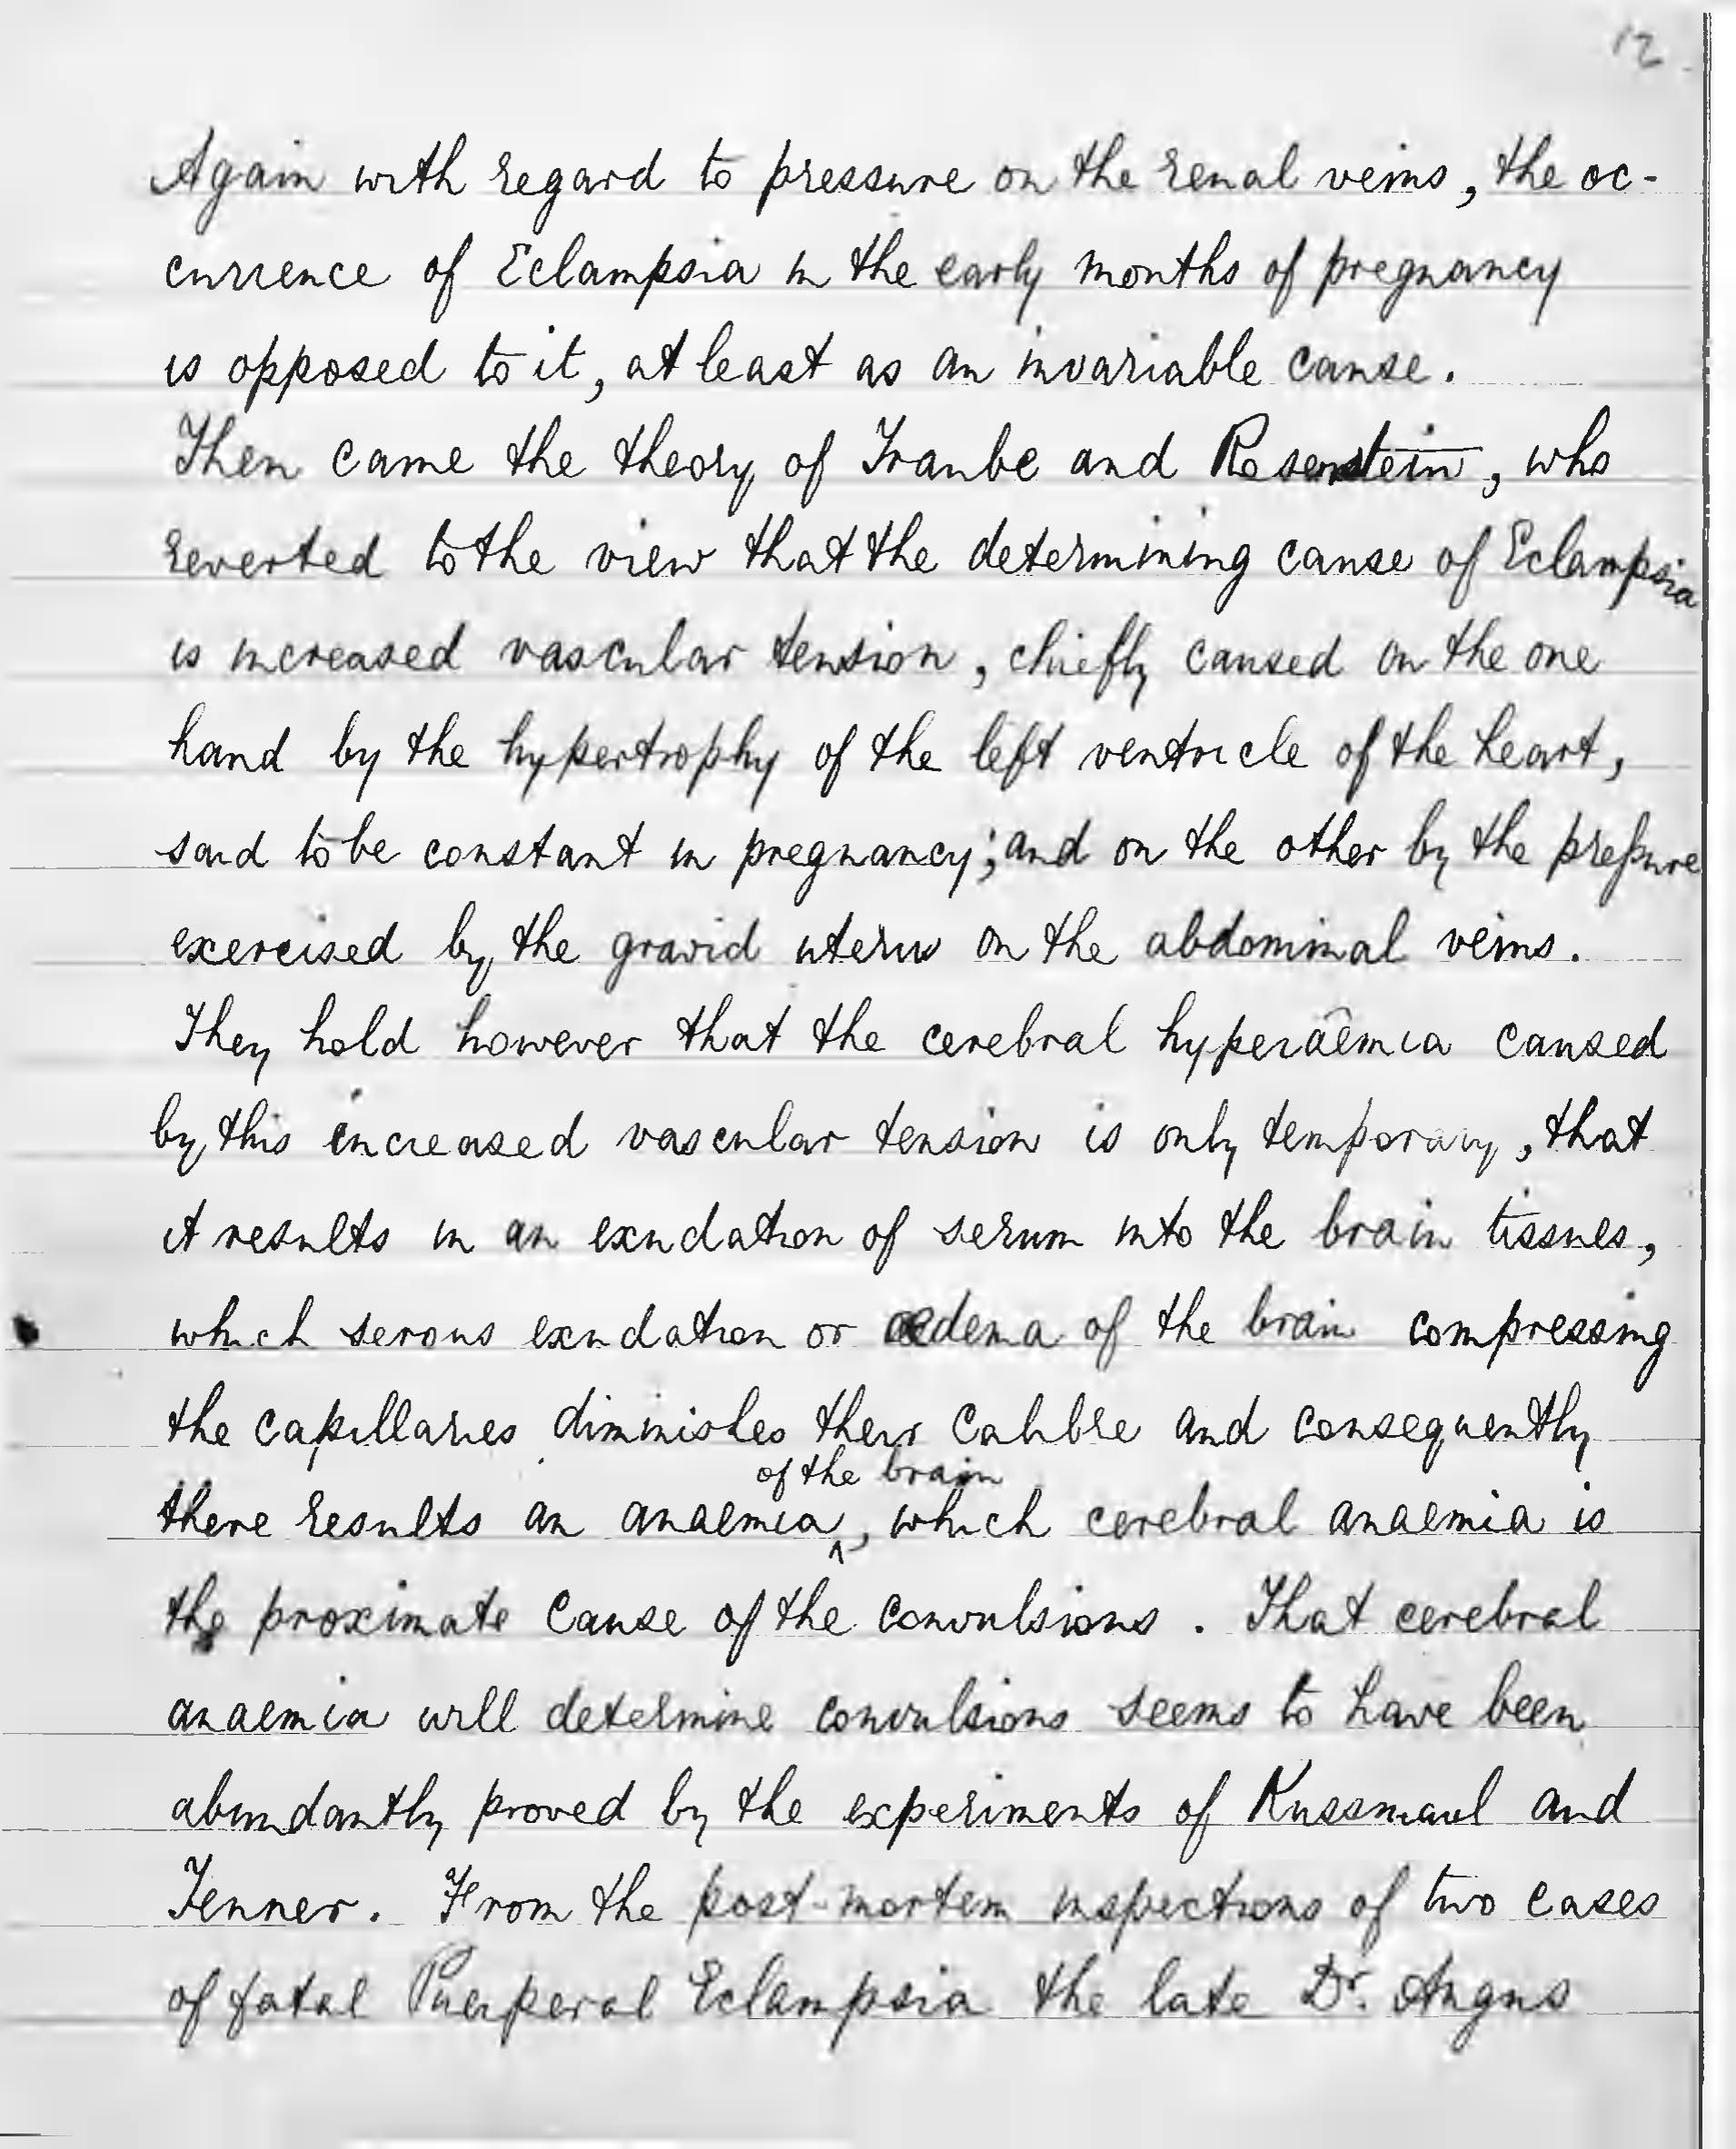 12.
Again with regard to pressure on the renal veins, the oc-
currence of Eclampsia in the early months of pregnancy
is opposed to it, at least as an invariable cause.
Then came the theory of Traube and Rosenstein, who
reverted to the view that the determining cause of Eclampsia
is increased vascular tension, chiefly caused on the one
hand by the hypertrophy of the left ventricle of the heart,
said to be constant in pregnancy; and on the other by the preſsure
exercised by the gravid uterus on the abdominal veins.
They hold however that the cerebral hyperaemia caused
by this increased vascular tension is only temporary, that
it results in an exudation of serum into the brain tissues,
which serous exudation or oedema of the brain compressing
the capillaries diminishes their calibre and consequently
of the brain
there results an anaemia^, which cerebral anaemia is
the proximate cause of the convulsions. That cerebral
anaemia will determine convulsions seems to have been
abundantly proved by the experiments of Kussmaul and
Tenner. From the post-mortem inspections of two cases
of fatal Puerperal Eclampsia the late Dr. Angus